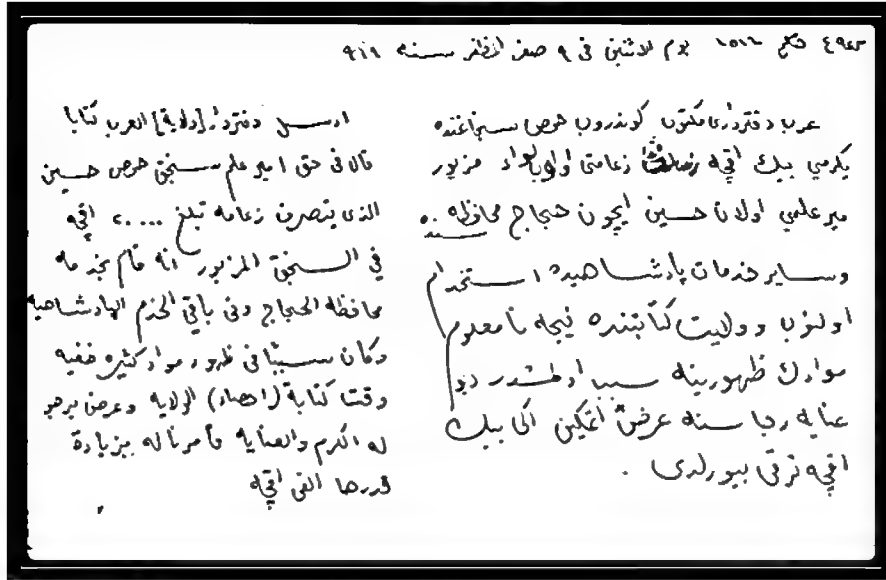 ٤٩٤٣ حكم ١٥١٦ يوم الاثنين في ٩ صفر المظفر سنه ٩٦٩
عرب دفترداری مكتوب كوندروب حوص سنجاغنده
يكرمي بيك اقچه زعامتی اولوب لواء مزبور
مير علمي اولان حسين ايچون حجاج محافظه سنده
وساير خدمات پادشاهيده استخدام
اولنوب و ولايت كتابتنده نيجه نا معلوم
موادك ظهورينه سبب اولمشدر ديو
عنايه رجا سنه عرض اتمكين اكی بيك
اقچه ترقی بيورلدی .
ارسل دفتردار [ولاية] العرب كتابا
قال في حق امير علم سنجق حوص حسين
الذی يتصرف زعامه تبلغ ٢٠٠٠٠ اقچه
في السنجق المزبور انه قام بخدمه
محافظه الحجاج وفی باقي الخدم الپادشاهيه
وكان سببا فی ظهور مواد كثيره خفيه
وقت كتابة (احصاء) الولايه وعرض يرجو
له الكرم والعنايه فأمرنا له بزيادة
قدرها الفی اقچه